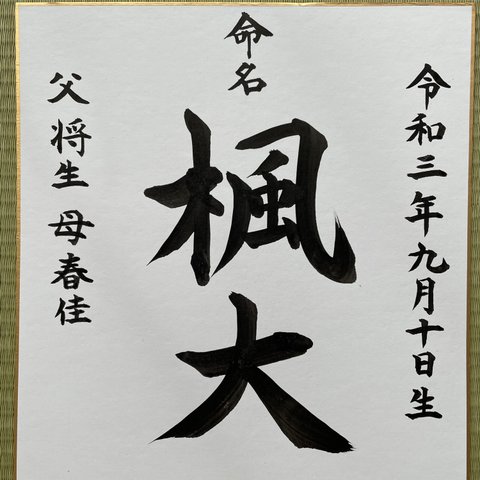 令和三年九月十日生
命名
楓大
父 将生 母 春佳